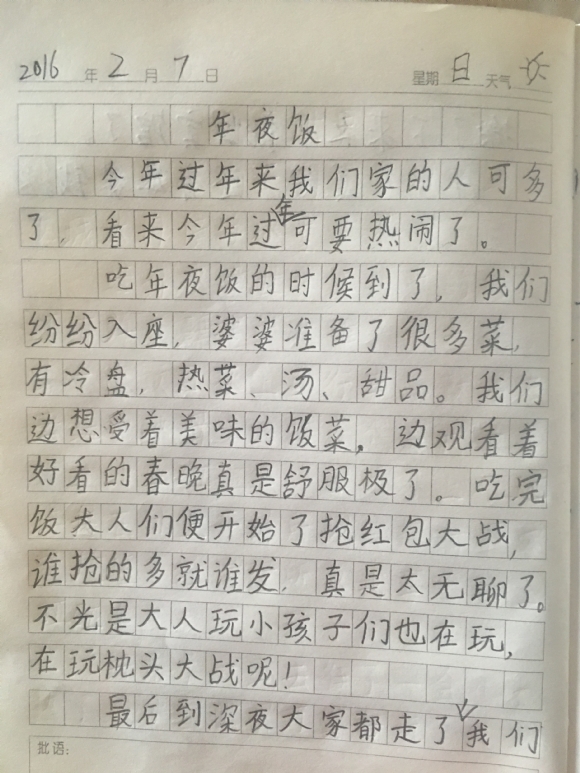 2016年2月7日 星期日 天气
年夜饭
今年过年来我们家的人可多
了，看来今年过年可要热闹了。
吃年夜饭的时候到了，我们
纷纷入座，婆婆准备了很多菜，
有冷盘，热菜、汤、甜品。我们
边想受着美味的饭菜，边观看着
好看的春晚真是舒服极了。吃完
饭大人们便开始了抢红包大战，
谁抢的多就谁发，真是太无聊了。
不光是大人玩小孩子们也在玩，
在玩枕头大战呢！
最后到深夜大家都走了，我们
批语：